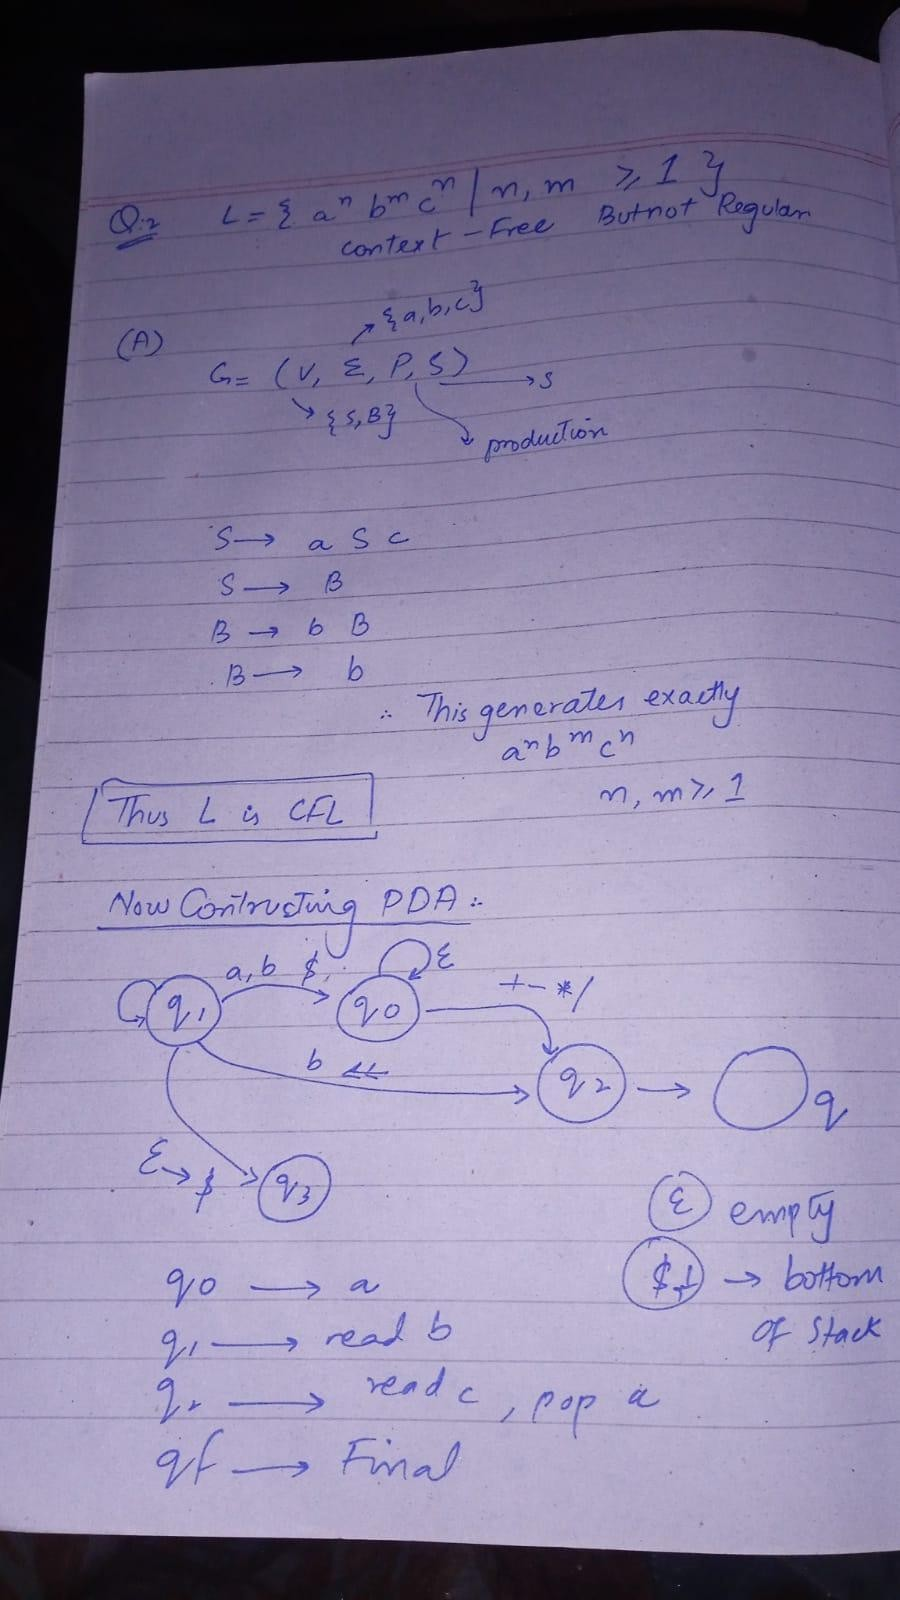 Q.2 L = { aⁿ bᵐ cⁿ | n, m ≥ 1 }
context-Free But not Regular
(A)
→ {a,b,c}
G = (V, Σ, P, S) → S
→ {S,B}
→ production
S → a S c
S → B
B → b B
B → b
∴ This generates exactly
aⁿ bᵐ cⁿ
n, m ≥ 1
Thus L is CFL
Now Contructing PDA :
a,b $, ε
q1 q0 + - * /
b q2 → q
ε → $ q3
ε empty
$ → bottom
of Stack
q0 → a
q1 → read b
q2 → read c, pop a
qf → Final